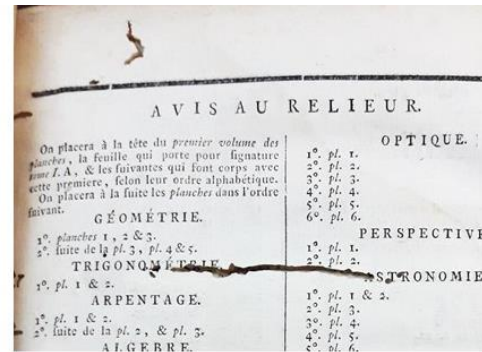 AVIS AU RELIEUR.
On placera à la tête du premier volume des
planches, la feuille qui porte pour signature
tome I. A, & les suivantes qui font corps avec
cette premiere, selon leur ordre alphabétique.
On placera à la suite les planches dans l'ordre
suivant.
GÉOMÉTRIE.
1°. planches 1, 2 & 3.
2°. suite de la pl. 3, pl. 4 & 5.
TRIGONOMÉTRIE.
1°. pl. 1 & 2.
ARPENTAGE.
1°. pl. 1 & 2.
2°. suite de la pl. 2, & pl. 3.
ALGEBRE.
OPTIQUE.
1°. pl. 1.
2°. pl. 2.
3°. pl. 3.
4°. pl. 4.
5°. pl. 5.
6°. pl. 6.
PERSPECTIVE
1°. pl. 1.
2°. pl. 2.
ASTRONOMIE
1°. pl. 1 & 2.
2°. pl. 3.
3°. pl. 4.
4°. pl. 5.
5°. pl. 6.